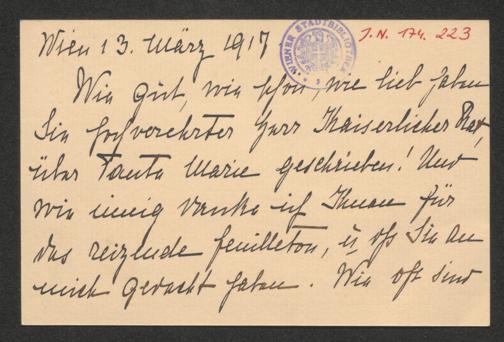 Wien 13. März 1917
WIENER STADTBIBLIOTHEK
J.N. 174.223
Wie gut, wie schön, wie lieb haben
Sie hochverehrter Herr Kaiserlicher Rat,
über Tante Marie geschrieben! Und
wie innig danke ich Ihnen für
das reizende feuilleton, u. daß Sie an
mich gedacht haben. Wie oft sind